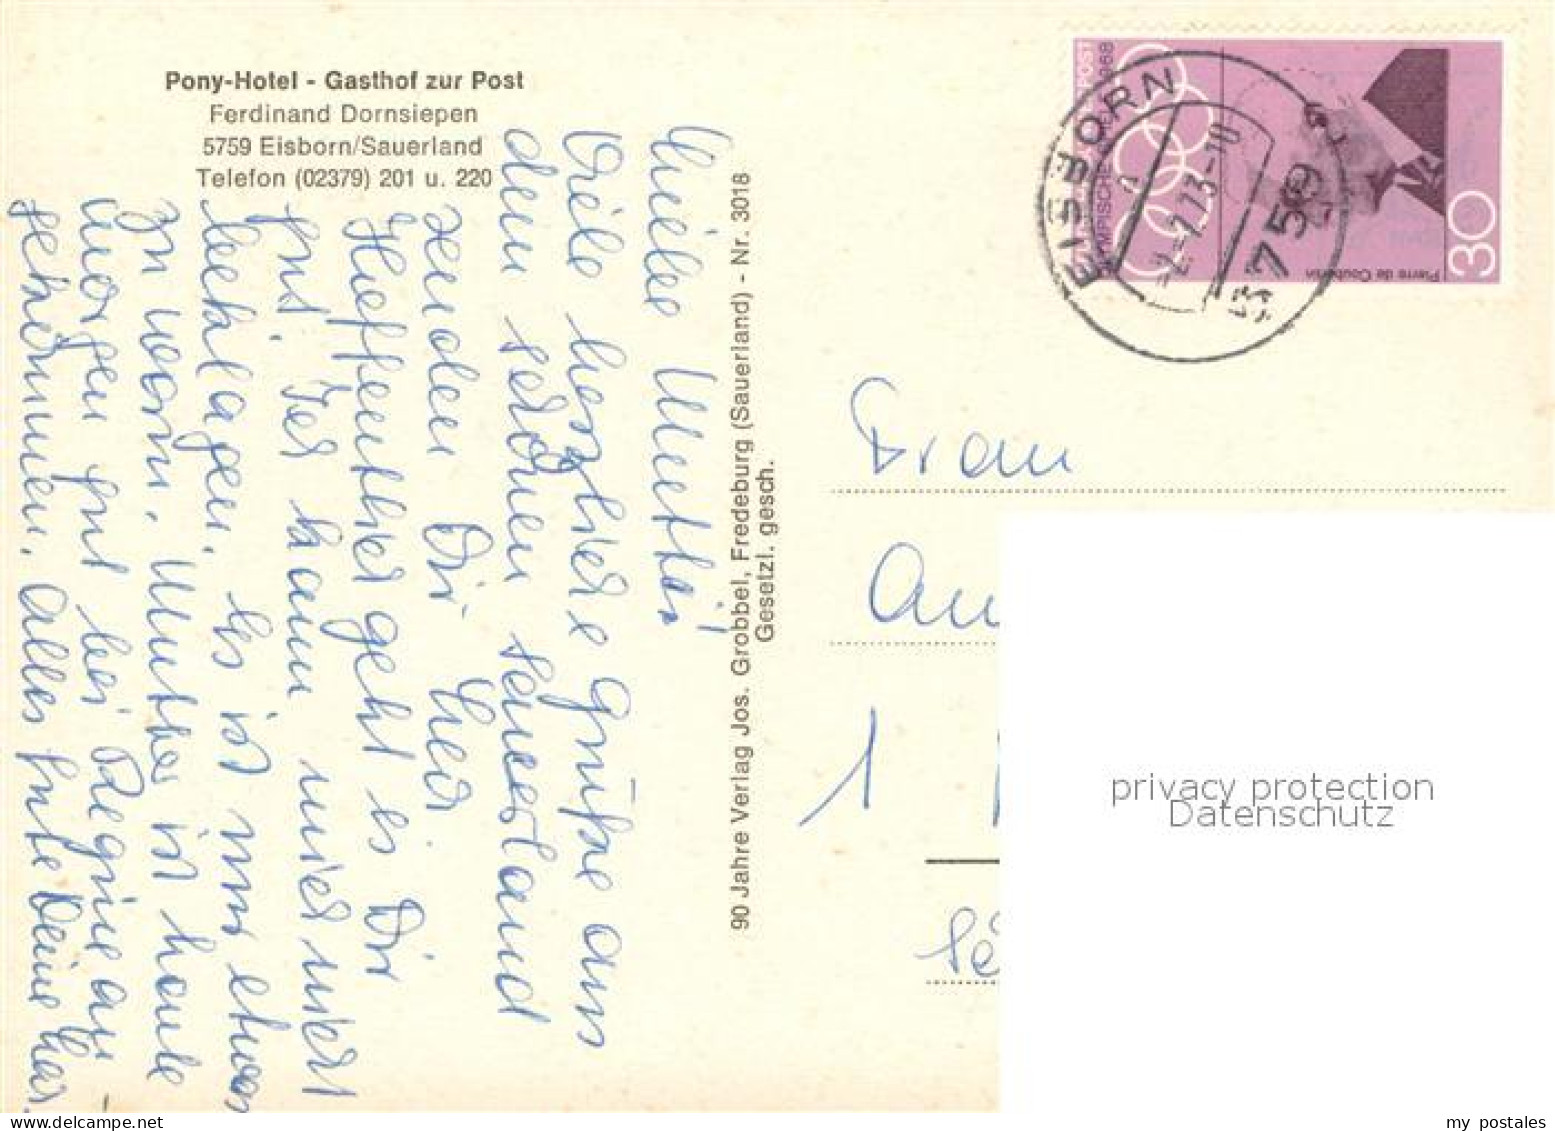 Pony-Hotel - Gasthof zur Post
Ferdinand Dornsiepen
5759 Eisborn/Sauerland
Telefon (02379) 201 u. 220
Liebe Mutti!
Viele herzliche Grüße aus
dem schönen Sauerland
senden Dir hier.
Hoffentlich geht es Dir
gut. Ich kann mich nicht
beklagen. Es ist nur etwas
zu warm. Mutter ist heute
morgen gut bei Regine an-
gekommen. Alles Gute Deine
90 Jahre Verlag Jos. Grobbel, Fredeburg (Sauerland) - Nr. 3018
Gesetzl. gesch.
POST
1968
OLYMPISCHE
Pierre de Coubertin
30
EISBORN
-2.-7.73-10
5759
Frau
1
privacy protection
Datenschutz
my postales